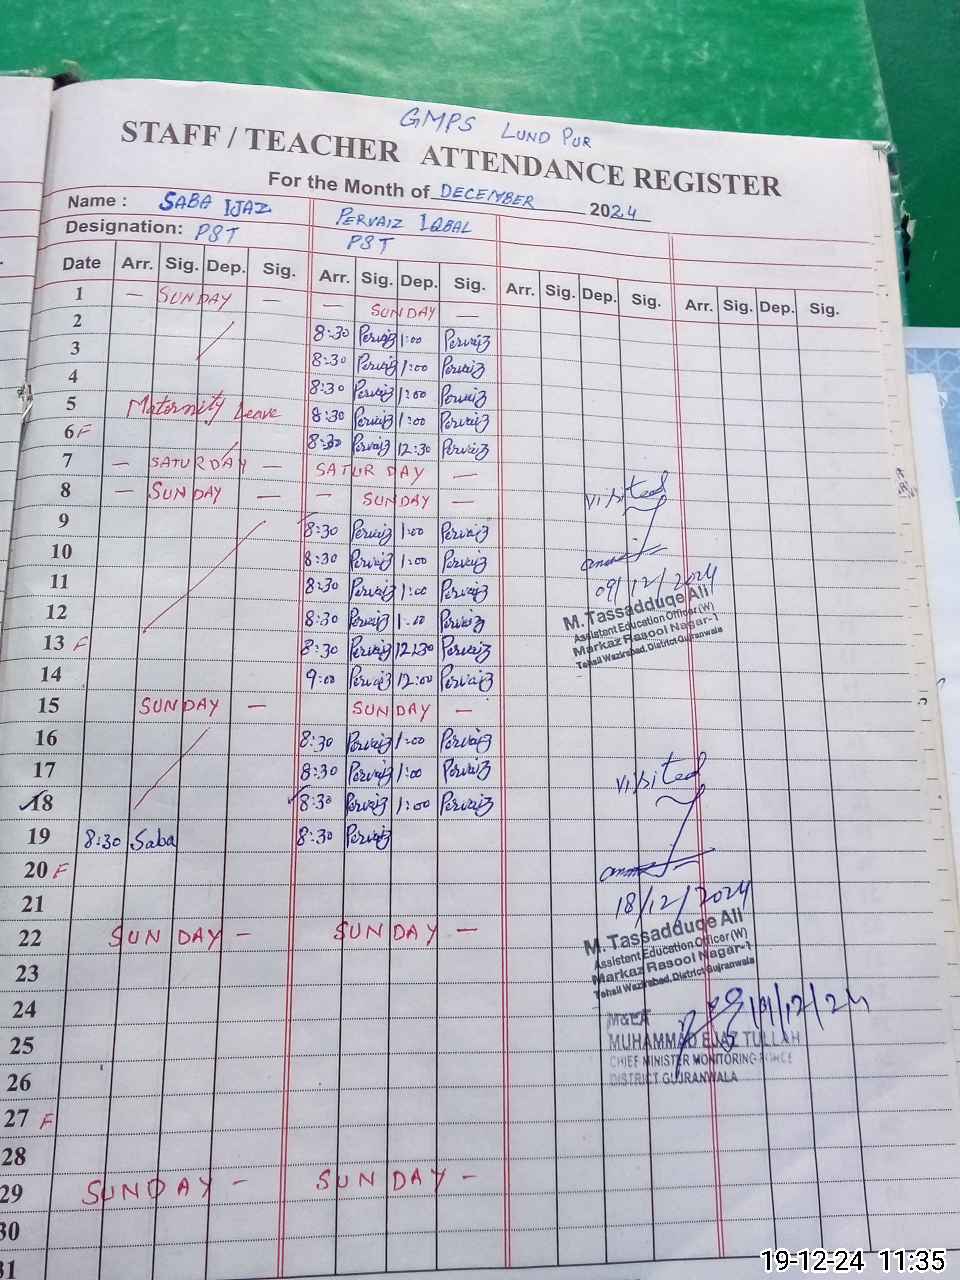 GMPS LUND PUR
STAFF / TEACHER ATTENDANCE REGISTER
For the Month of DECEMBER 2024
Name : SABA IJAZ PERVAIZ IQBAL
Designation: PST PST
Date Arr. Sig. Dep. Sig. Arr. Sig. Dep. Sig. Arr. Sig. Dep. Sig. Arr. Sig. Dep. Sig.
1 — SUNDAY — — SUNDAY —
2 8:30 Pervaiz 1:00 Pervaiz
3 8:30 Pervaiz 1:00 Pervaiz
4 8:30 Pervaiz 1:00 Pervaiz
5 Maternity Leave 8:30 Pervaiz 1:00 Pervaiz
6 F 8:30 Pervaiz 12:30 Pervaiz
7 — SATURDAY — SATURDAY —
8 — SUNDAY — — SUNDAY —
visited
9 8:30 Pervaiz 1:00 Pervaiz
10 8:30 Pervaiz 1:00 Pervaiz
11 8:30 Pervaiz 1:00 Pervaiz
09/12/2024
12 8:30 Pervaiz 1:00 Pervaiz
M. Tassadduqe Ali
Assistent Education Officer (W)
Markaz Rasool Nagar-1
Tehsil Wazirabad, District Gujranwala
13 F 8:30 Pervaiz 12:30 Pervaiz
14 9:00 Pervaiz 12:00 Pervaiz
15 SUNDAY — SUNDAY —
16 8:30 Pervaiz 1:00 Pervaiz
17 8:30 Pervaiz 1:00 Pervaiz
visited
18 8:30 Pervaiz 1:00 Pervaiz
19 8:30 Saba 8:30 Pervaiz
20 F
21
18/12/2024
22 SUNDAY — SUNDAY —
M. Tassadduqe Ali
Assistent Education Officer (W)
Markaz Rasool Nagar-1
Tehsil Wazirabad, District Gujranwala
23
24
25
M&EA
MUHAMMAD EJAZ TULLAH
CHIEF MINISTER MONITORING FORCE
DISTRICT GUJRANWALA
26
27 F
28
29 SUNDAY — SUNDAY —
30
31
19-12-24 11:35